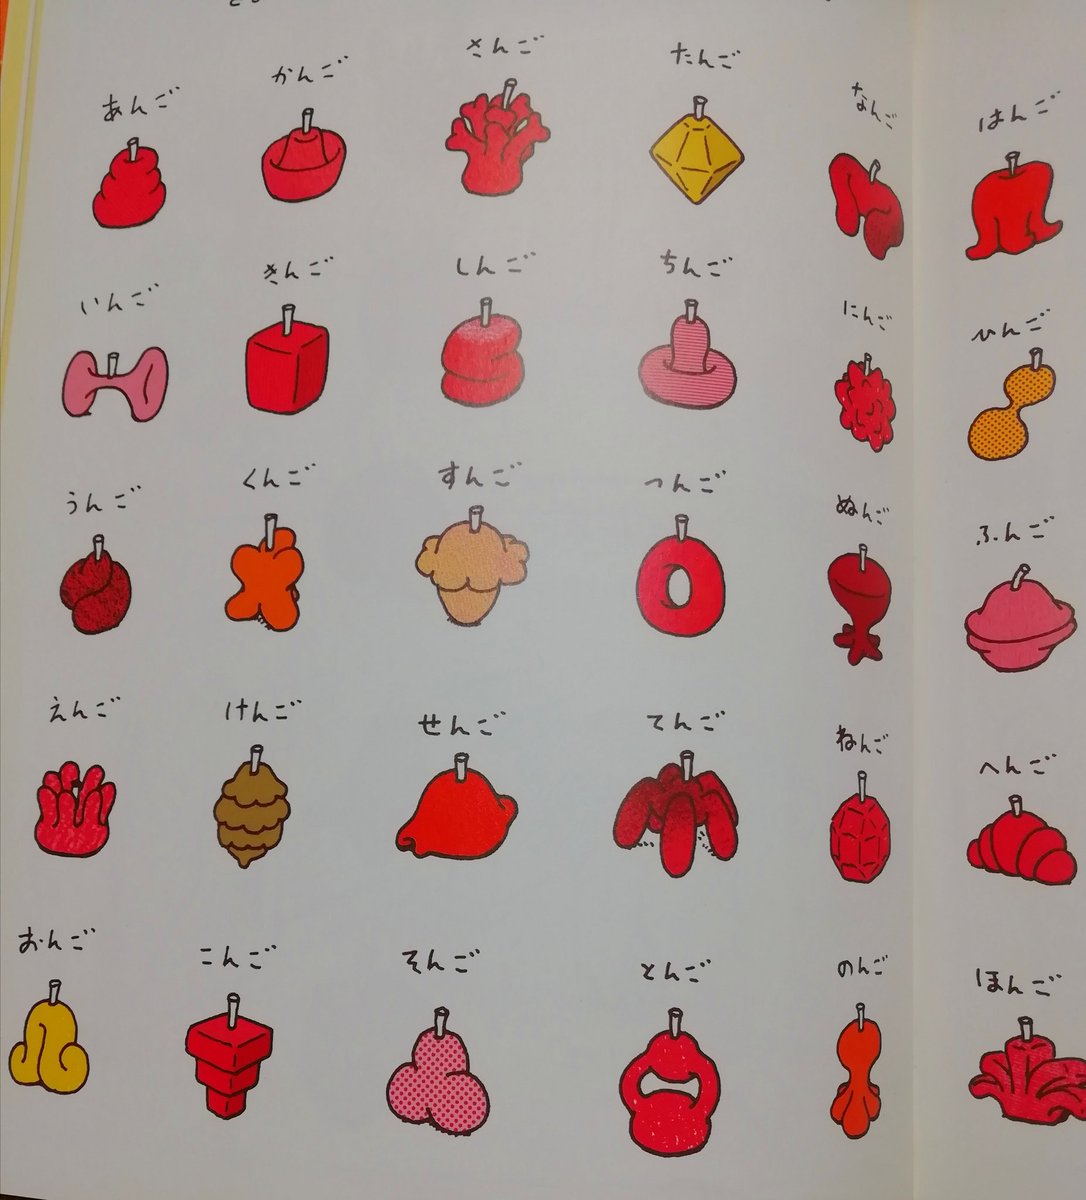 あんご
かんご
さんご
たんご
なんご
はんご
いんご
きんご
しんご
ちんご
にんご
ひんご
うんご
くんご
すんご
つんご
ぬんご
ふんご
えんご
けんご
せんご
てんご
ねんご
へんご
おんご
こんご
そんご
とんご
のんご
ほんご